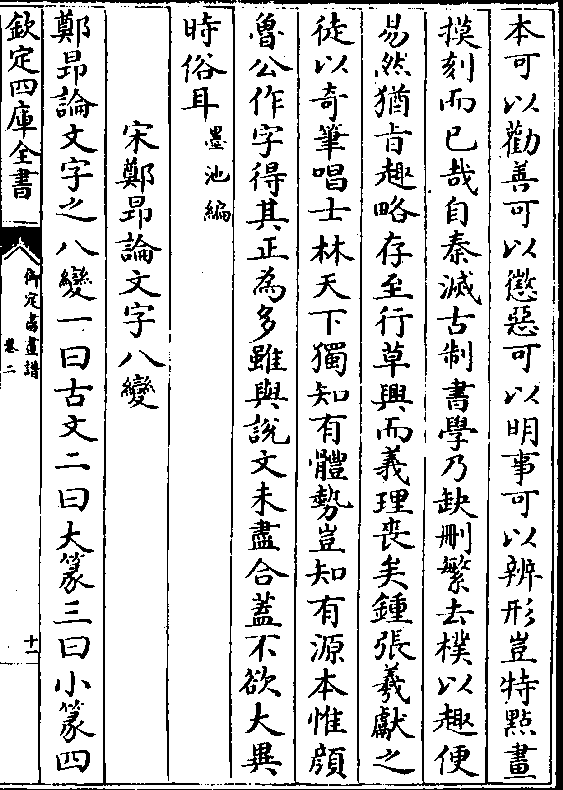 本可以勸善可以懲惡可以明事可以辨形豈特點畫
摸刻而已哉自秦滅古制書學乃缺刪繁去樸以趣便
易然猶旨趣略存至行草興而義理喪矣鍾張羲獻之
徒以奇筆唱士林天下獨知有體勢豈知有源本惟顔
魯公作字得其正為多雖與說文未盡合蓋不欲大異
時俗耳墨池編
宋鄭昂論文字八變
鄭昂論文字之八變一曰古文二曰大篆三曰小篆四
欽定四庫全書
御定書畫譜
卷二
十一